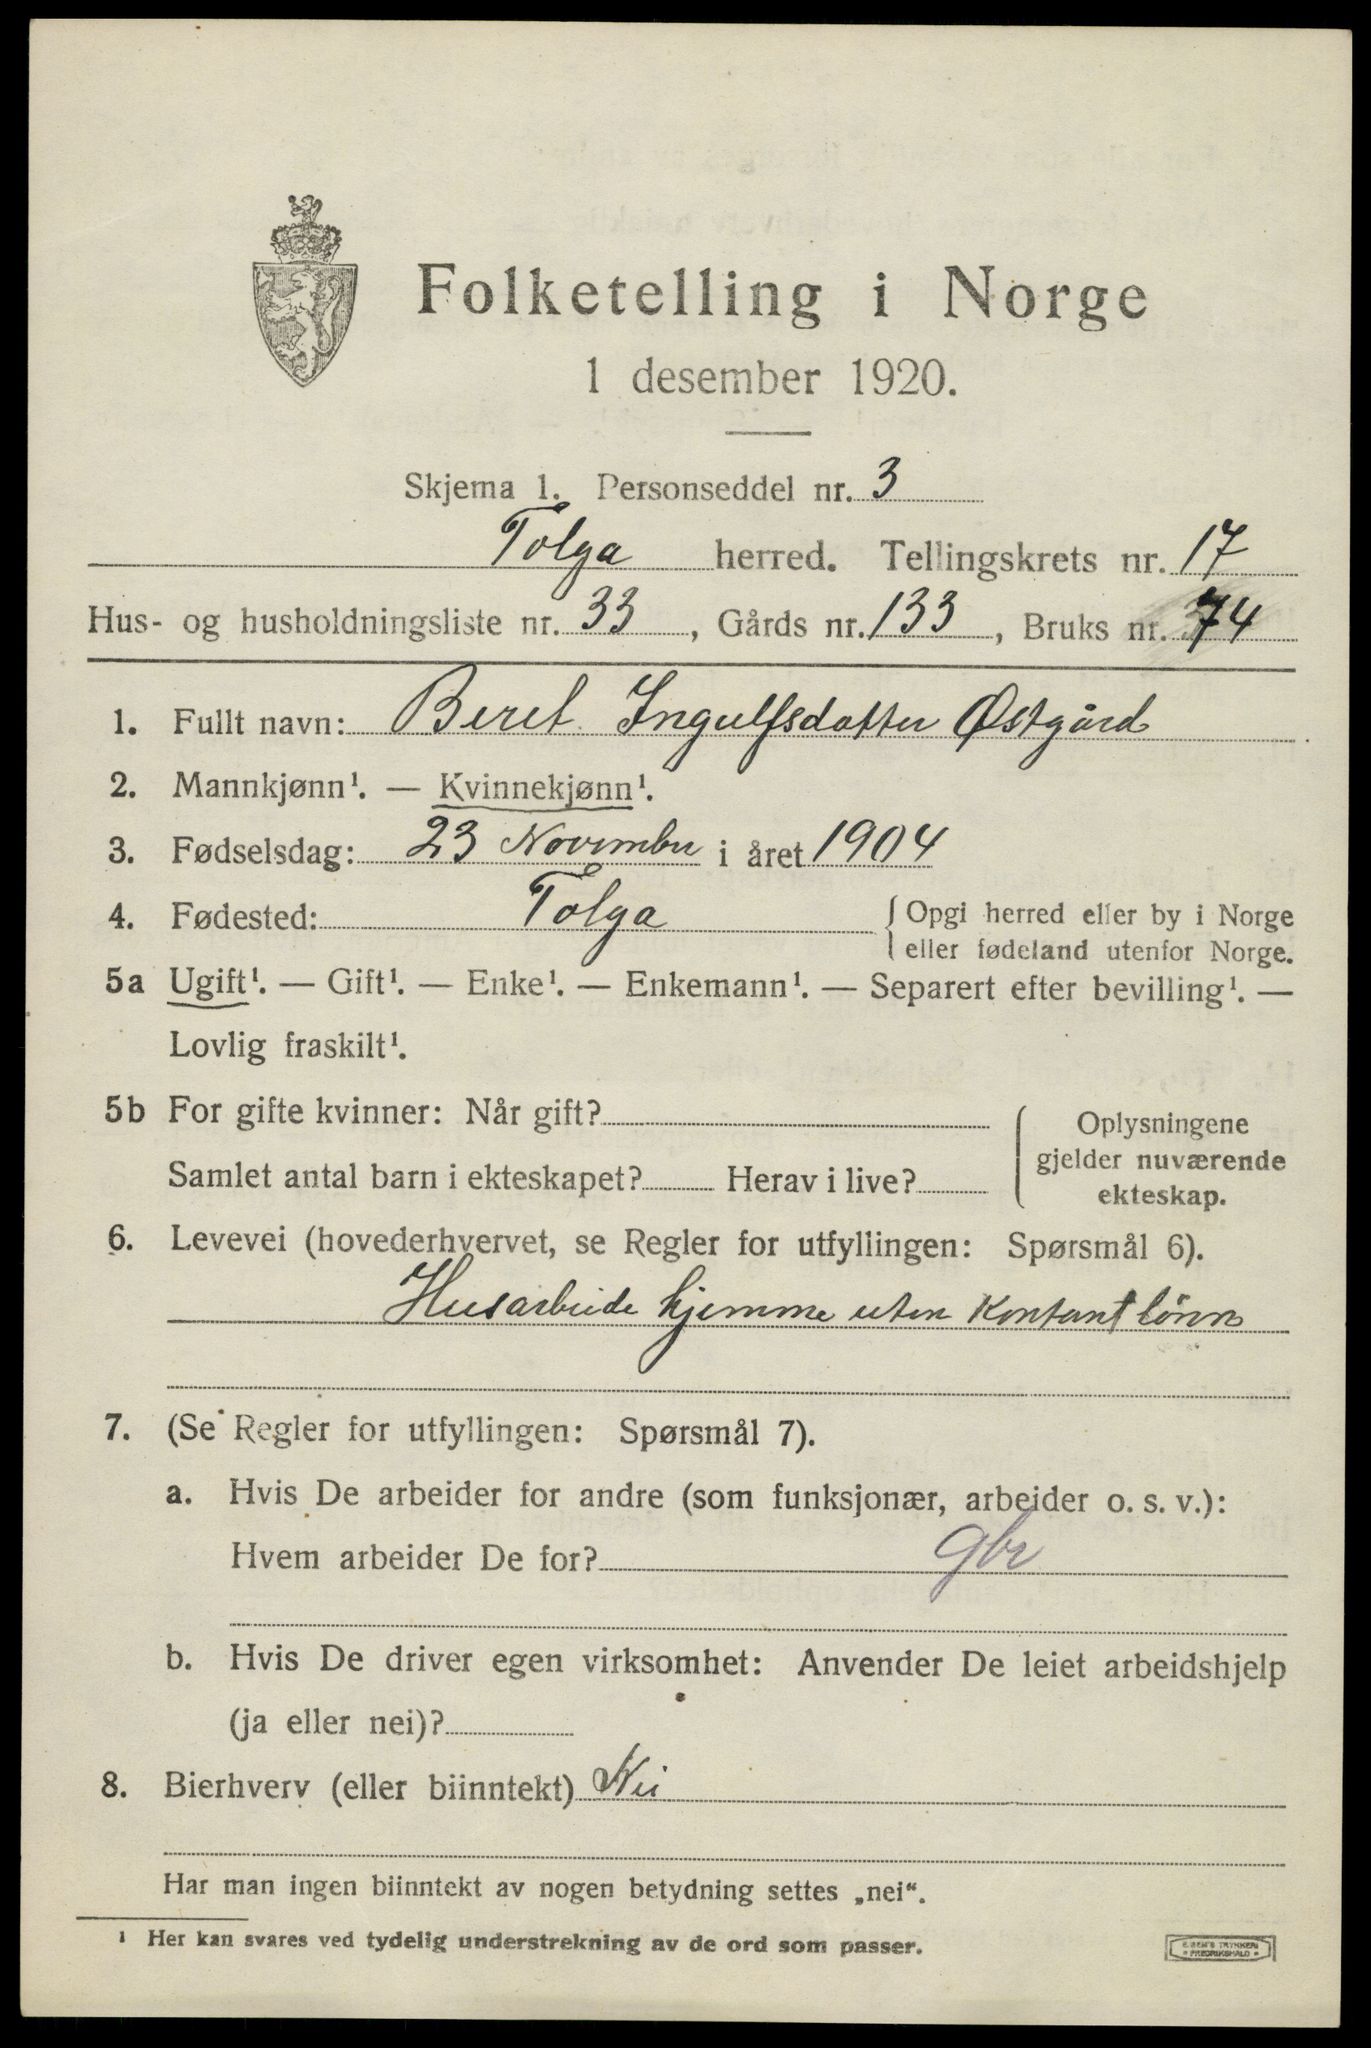 Folketelling i Norge
1 desember 1920.
Skjema 1. Personseddel nr. 3
Tolga herred. Tellingskrets nr. 17
Hus- og husholdningsliste nr. 33, Gårds nr. 133, Bruks nr. 74
1. Fullt navn: Beret Ingulfsdatter Østgård
2. Mannkjønn¹. — Kvinnekjønn¹.
3. Fødselsdag: 23 November i året 1904
4. Fødested: Tolga { Opgi herred eller by i Norge
eller fødeland utenfor Norge.
5a Ugift¹. — Gift¹. — Enke¹. — Enkemann¹. — Separert efter bevilling¹. —
Lovlig fraskilt¹.
5b For gifte kvinner: Når gift?
Samlet antal barn i ekteskapet? Herav i live?
Oplysningene
gjelder nuværende
ekteskap.
6. Levevei (hovederhvervet, se Regler for utfyllingen: Spørsmål 6).
Husarbeide hjemme uten Kontant lönn
7. (Se Regler for utfyllingen: Spørsmål 7).
a. Hvis De arbeider for andre (som funksjonær, arbeider o. s. v.):
Hvem arbeider De for? gbr
b. Hvis De driver egen virksomhet: Anvender De leiet arbeidshjelp
(ja eller nei)?
8. Bierhverv (eller biinntekt) Nei
Har man ingen biinntekt av nogen betydning settes „nei“.
¹ Her kan svares ved tydelig understrekning av de ord som passer.